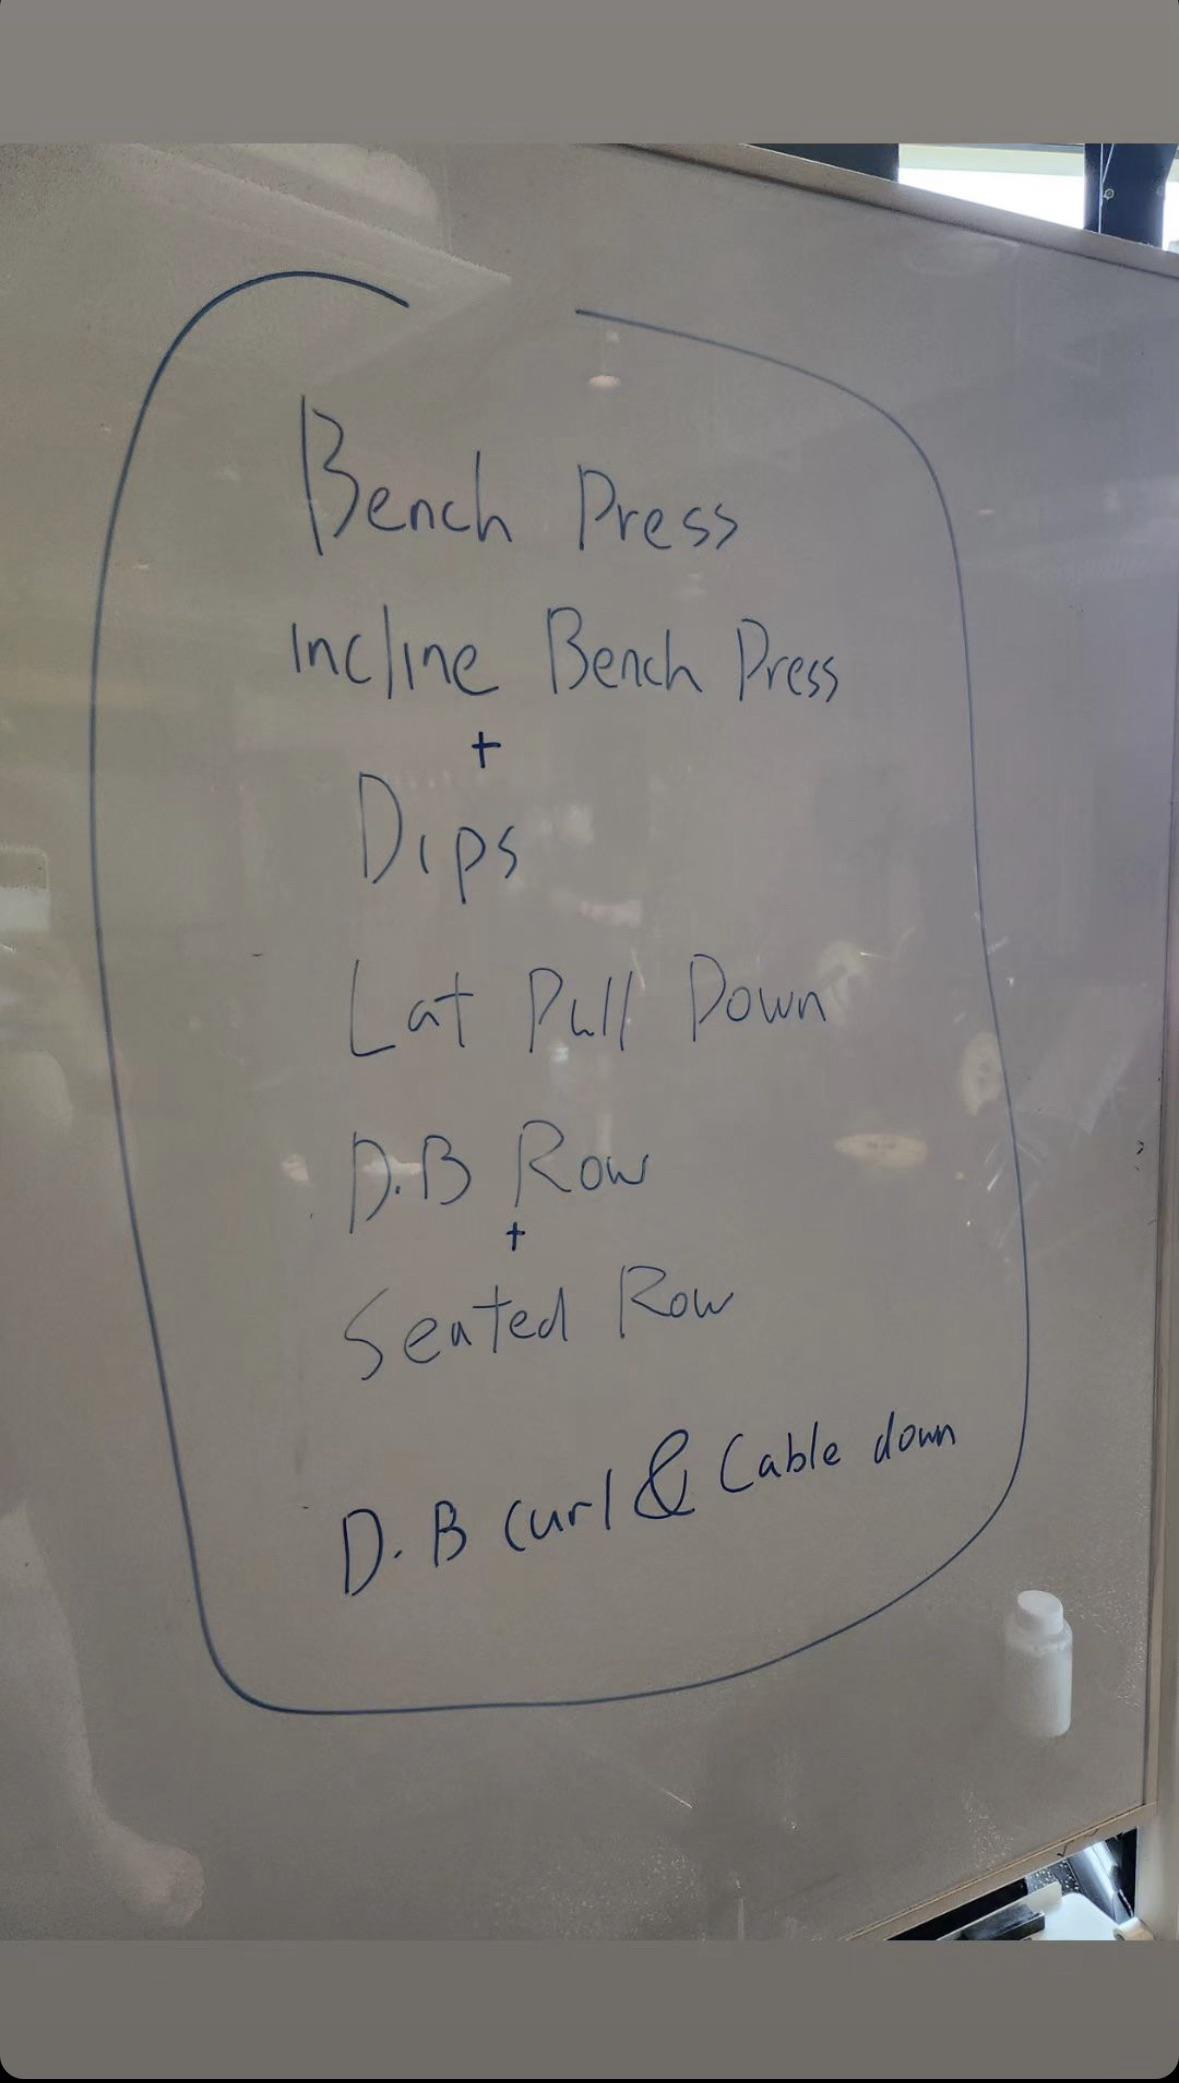 Bench Press
Incline Bench Press
+
Dips
Lat Pull Down
D.B Row
+
Seated Row
D.B Curl & Cable down